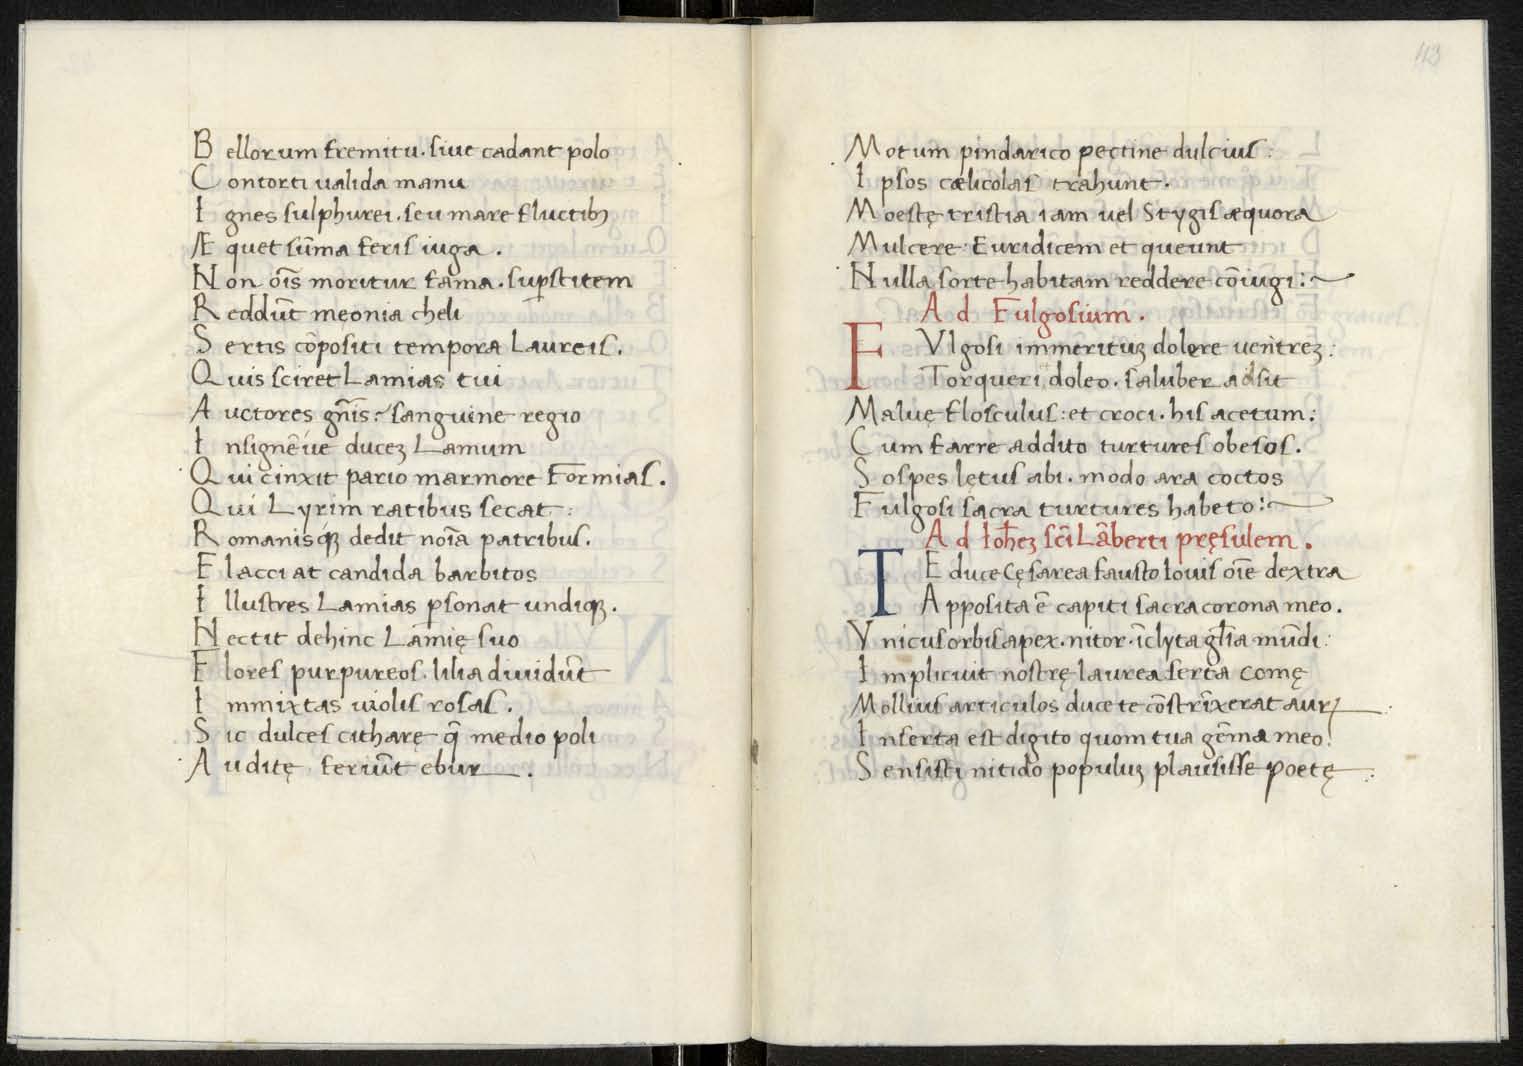 Bellorum fremitu. siue cadant polo
Contorti ualida manu
Ignes sulphurei. seu mare fluctibꝫ
Æquet sūma feris iuga.
Non oīs moritur fama. suꝑstitem
Reddūt meonia cheli
Sertis cōpositi tempora Laureis.
Quis sciret Lamias tui
Auctores gn̄is: sanguine regio
Insignē ue ducez Lamum
Qui cinxit pario marmore Formias.
Qui Lyrim ratibus secat:
Romanisqꝫ dedit noīa patribus.
Flacci at candida barbitos
Illustres Lamias ꝑsonat undiqꝫ.
Nectit dehinc Lamię suo
Flores purpureos. lilia diuidūt
Immixtas uiolis rosas.
Sic dulces citharę q̄ medio poli
Auditę feriūt ebur.
43
Motum pindarico pectine dulcius:
Ipsos cælicolas trahunt.
Moestę tristia iam uel Stygis æquora
Mulcere: Euridicem et queunt
Nulla sorte habitam reddere cōiugi:~
Ad Fulgosium.
FVlgosi immerituꝫ dolore uentreꝫ:
Torqueri doleo. saluber adsit
Maluę flosculus: et croci. his acetum:
Cum farre addito turtures obesos.
Sospes lętus abi. modo ara coctos
Fulgosi sacra turtures habeto:~
Ad Ioh̄eꝫ sc̄i Lāberti pręsulem.
TE duce Cęsarea fausto Iouis oīe dextra
Apposita ē capiti sacra corona meo.
Vnicus orbis apex. nitor. īclyta gl̄ia mūdi:
Implicuit nostrę laurea serta comę
Mollius articulos duce te cōstrīxerat auꝝ
Inserta est digito quom tua gēma meo:
Sensisti nitido populuꝫ plausisse poetę: